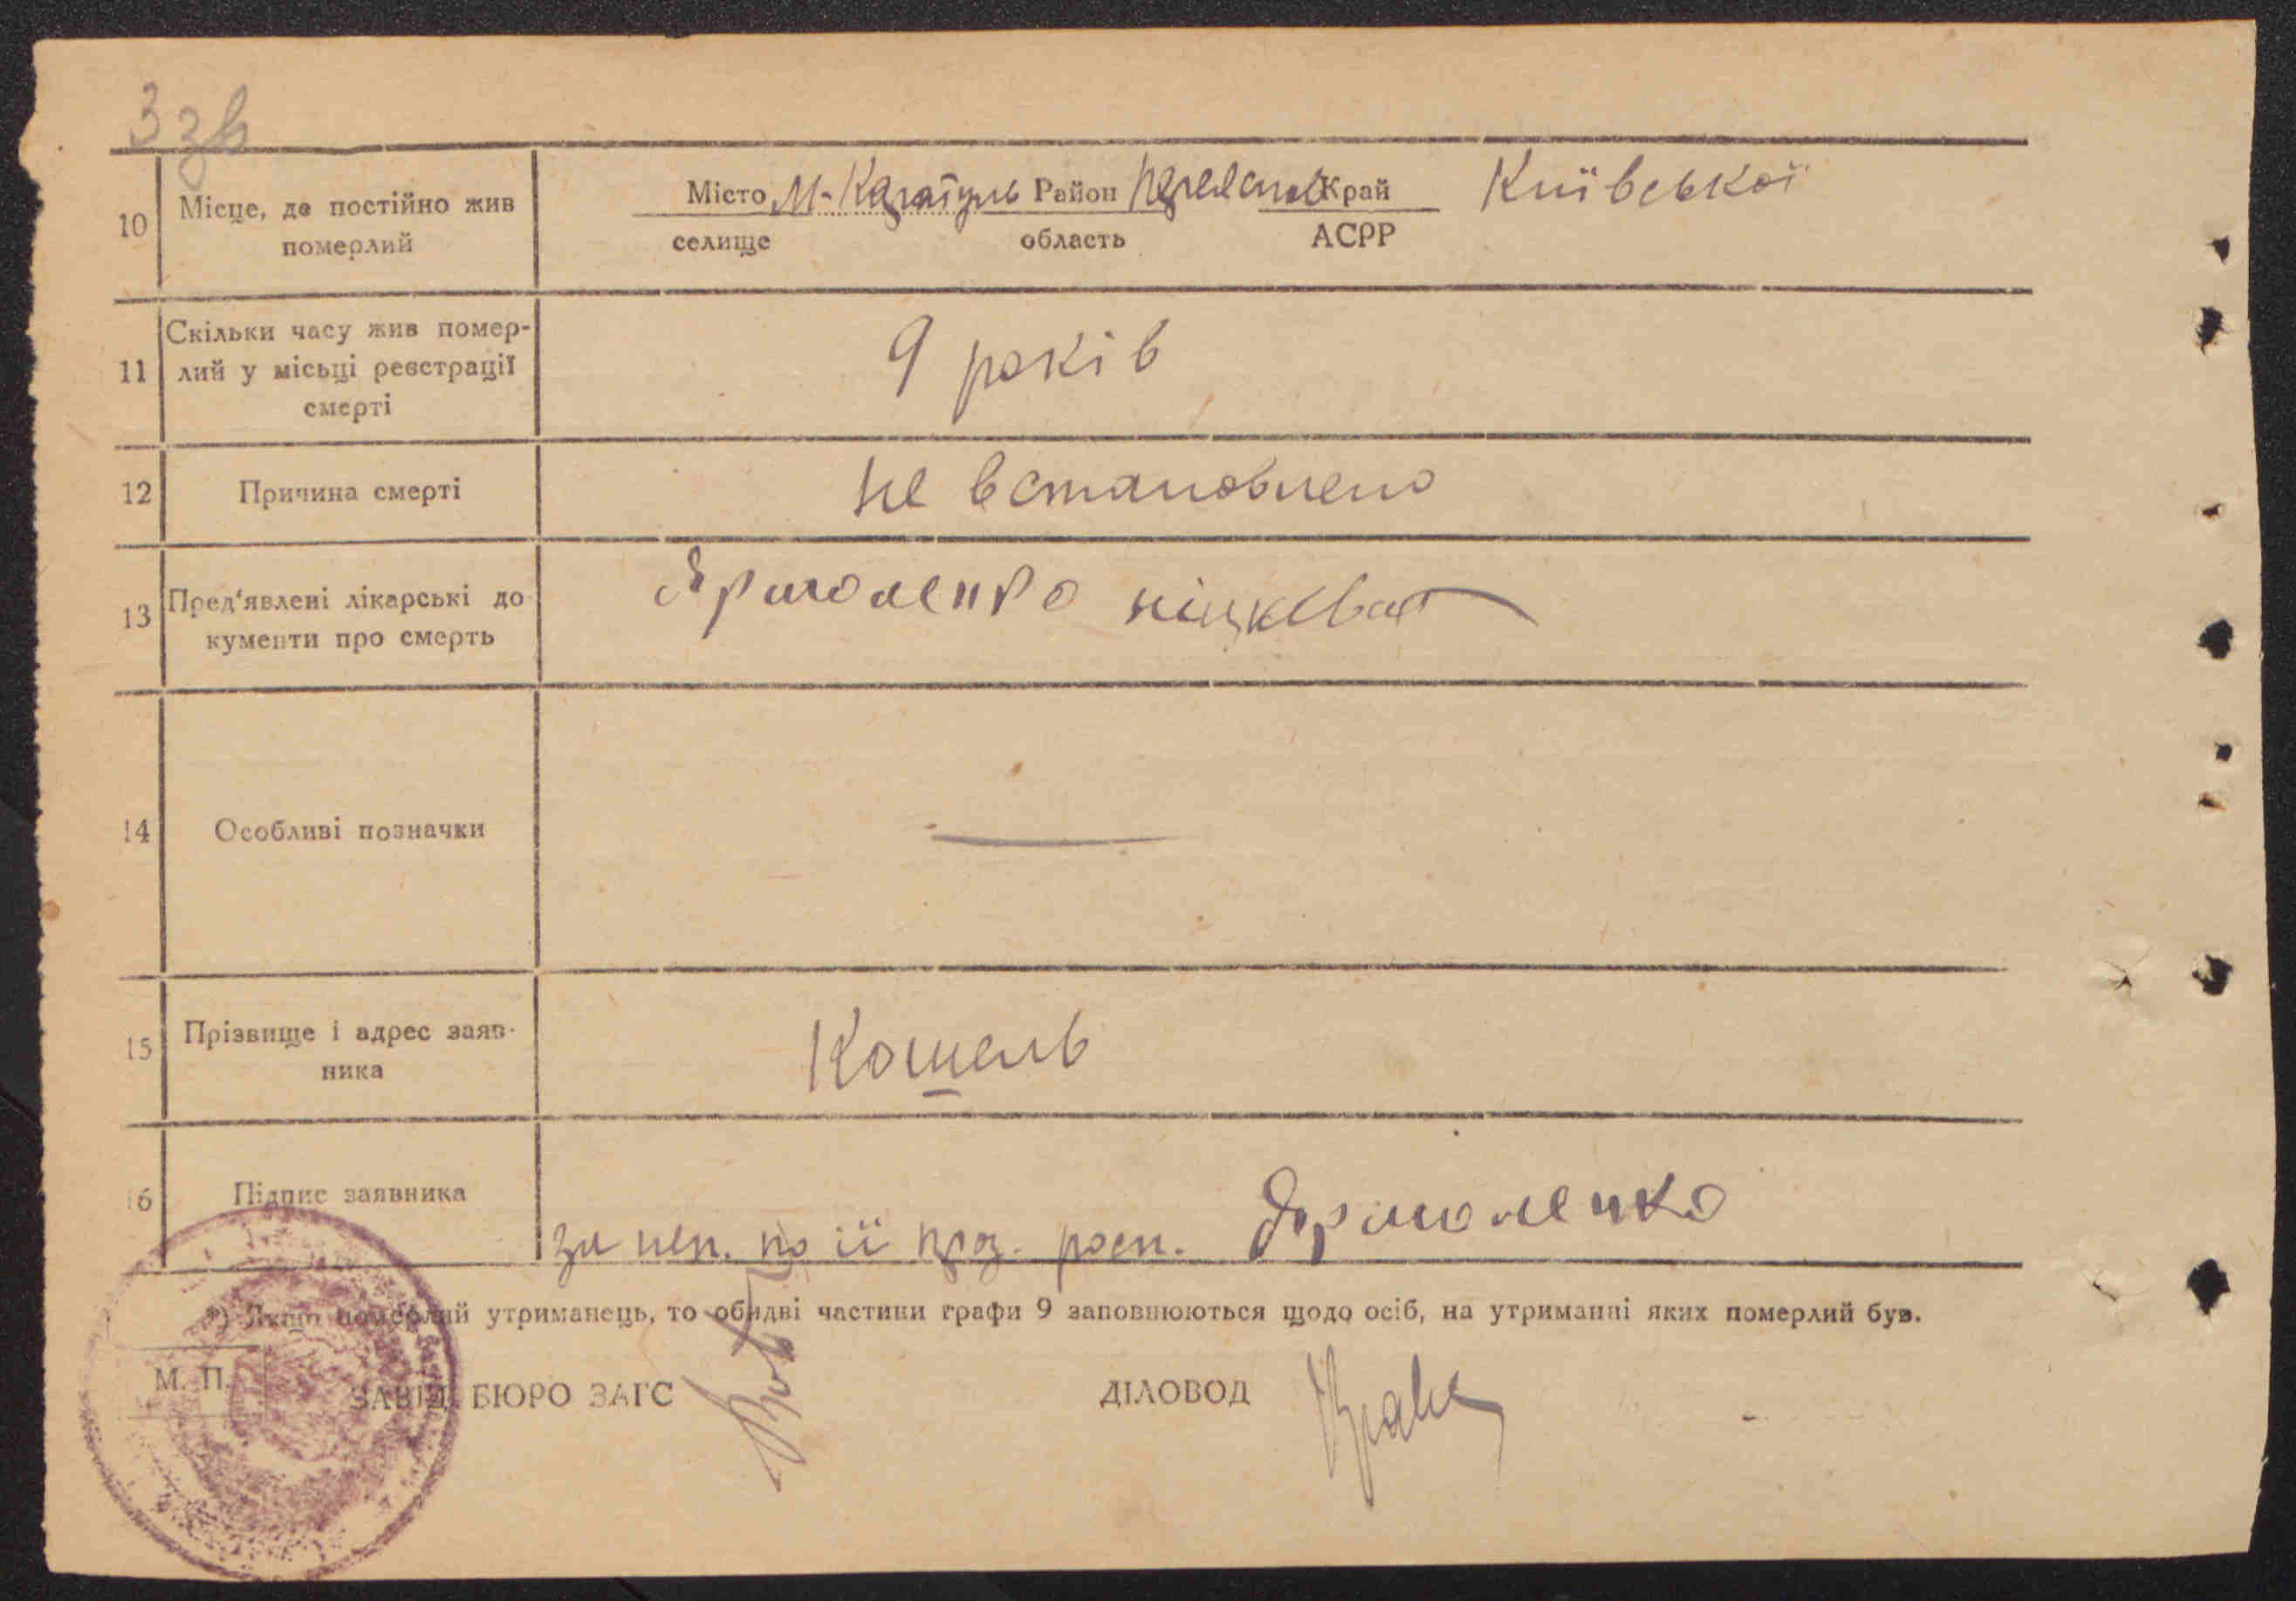 3 зв
10 Місце, де постійно жив померлий
Місто М-Каратуль Район Переяслав Край Київської
селище область АСРР
11 Скільки часу жив помер-
лий у місці реєстрації
смерті
9 років
12 Причина смерті
не встановлено
13 Пред'явлені лікарські до
кументи про смерть
Ярмоленко
14 Особливі позначки
—
15 Прізвище і адрес заяв-
ника
Кошель
16 Підпис заявника
за неп. по її розп. Ярмоленко
*) Якщо померлий утриманець, то обидві частини графи 9 заповнюються щодо осіб, на утриманні яких померлий був.
М. П.
ЗАВІД. БЮРО ЗАГС
ДІЛОВОД